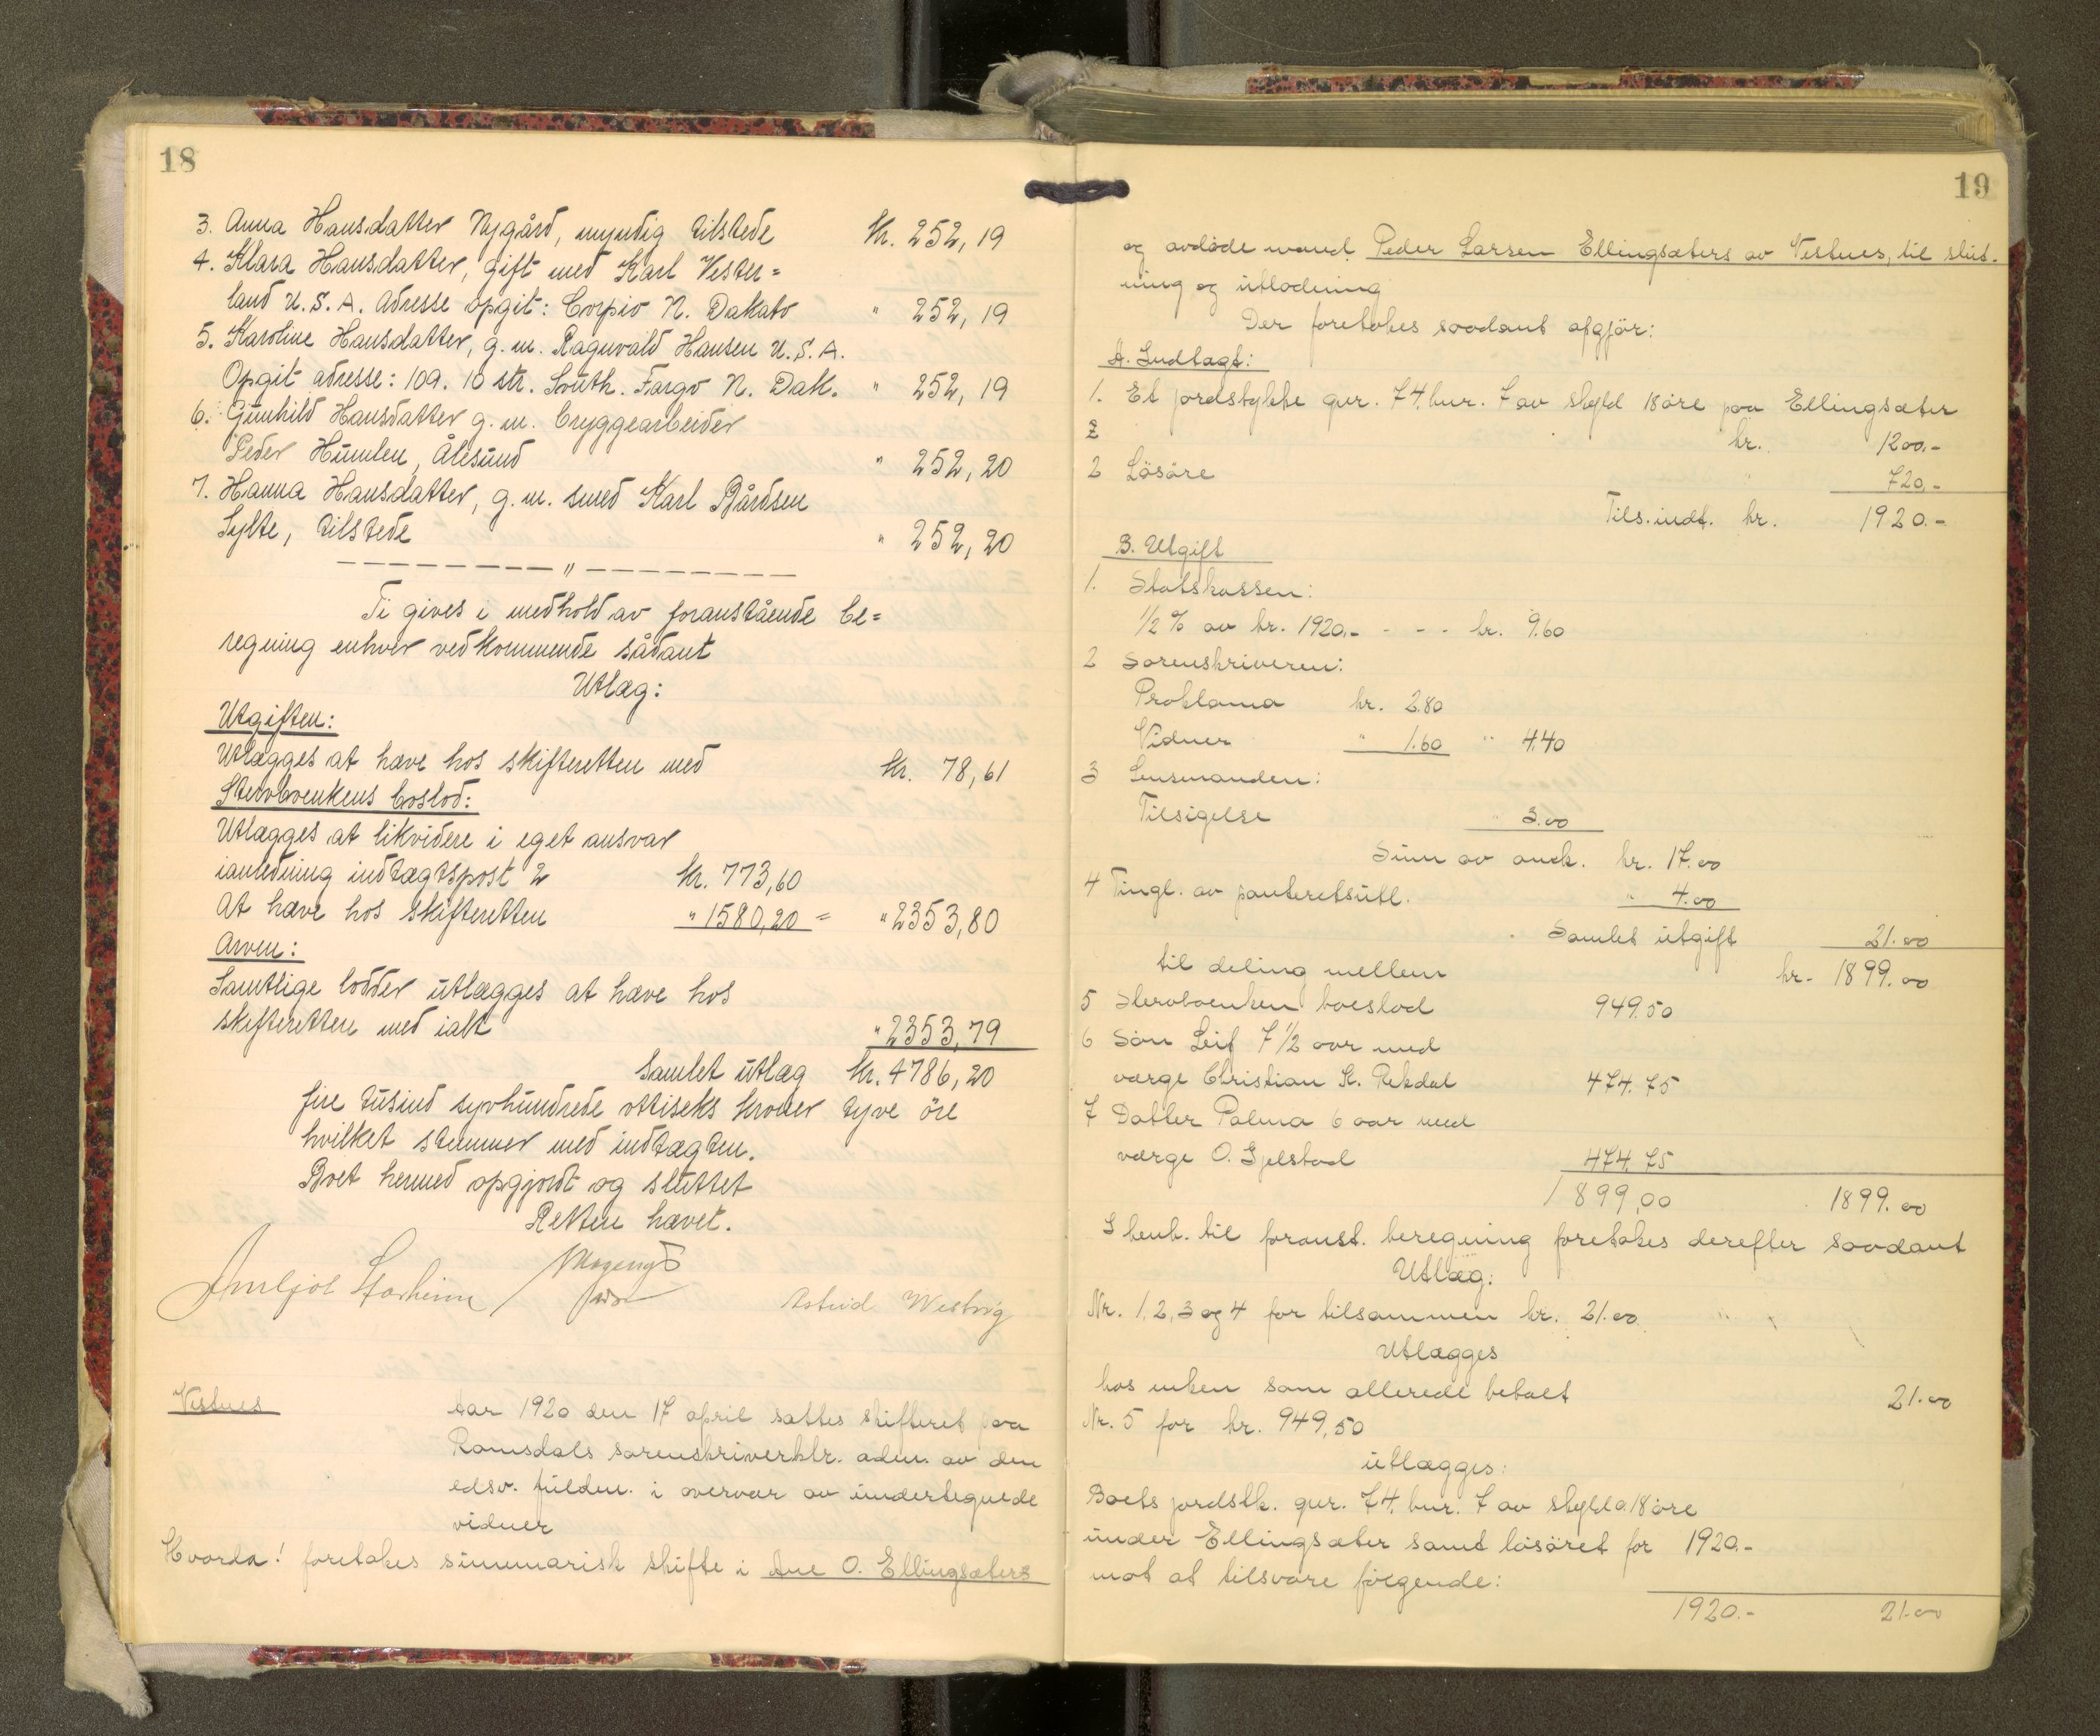 18
3. Anna Hansdatter Nygård, myndig tilstede Kr. 252,19
4. Klara Hansdatter, gift med Karl Vester=
land U.S.A. Adresse opgit: Corpio N. Dakato " 252,19
5. Karoline Hansdatter, g. m. Ragnvald Hansen U.S.A.
Opgit adresse: 109. 10 str. South. Fargo N. Dak. " 252,19
6. Gunhild Hansdatter g. m. bryggearbeider
Peder Humlen, Ålesund " 252,20
7. Hanna Hansdatter, g. m. smed Karl Bårdsen
Sylte, tilstede " 252,20
— — — — — — — " — — — — — — —
Ti gives i medhold av foranstående be=
regning enhver vedkommende sådant
Utlæg:
Utgiften:
Utlægges at hæve hos skifteretten med Kr. 78,61
Stervboenkens boslod:
Utlægges at likvidere i eget ansvar
ianledning indtægtspost 2 Kr. 773,60
At hæve hos skifteretten " 1580,20 = " 2353,80
Arven:
Samtlige lodder utlægges at hæve hos
skifteretten med ialt " 2353,79
Samlet utlæg Kr. 4786,20
fire tusind syvhundrede ottiseks kroner tyve öre
hvilket stemmer med indtægten.
Boet hermed opgjordt og sluttet
Retten hævet.
Storheim
Astrid Westvig
Vestnes
Aar 1920 den 17 april sattes skifteret paa
Romsdals sorenskriverktr. adm. av den
edsv. fuldm. i overvær av undertegnede
vidner
Hvorda! foretokes summarisk skifte i Ane O. Ellingsæters
19
og avdöde mand Peder Larsen Ellingsæters av Vestnes, til slut-
ning og utlodning
Der foretokes saadant opgjör:
A. Indtægt:
1. Et jordstykke gnr. 74. bnr. 7 av skyld 18 öre paa Ellingsæter
2 kr. 1200.-
2 Lösöre " 720.-
Tils. indt. kr. 1920.-
B. Utgift
1. Statskassen:
1/2 % av kr. 1920.- - - - kr. 9.60
2 Sorenskriveren:
Proklama kr. 2.80
Vidner " 1.60 " 4.40
3 Lensmanden:
Tilsigelse " 3.00
Sum av anck. kr. 17.00
4 Tingl. av panteretsutl. " 4.00
Samlet utgift 21.00
til deling mellem kr. 1899.00
5 Stervboenken boeslod 949.50
6 Sön Leif 7 1/2 aar med
værge Christian K. Rekdal 474.75
7 Datter Palma 6 aar med
værge O. Gjelstad 474.75
1899,00 1899.00
I henh. til foranst. beregning foretokes derefter saadant
Utlæg:
Nr. 1, 2, 3 og 4 for tilsammen kr. 21.00
Utlægges
hos enken som allerede betalt 21.00
Nr. 5 for kr. 949,50
utlægges:
Boets jordstk. gnr. 74. bnr. 7 av skyld 18 öre
under Ellingsæter samt lösöret for 1920.-
mot at tilsvare fölgende:
1920.- 21.00